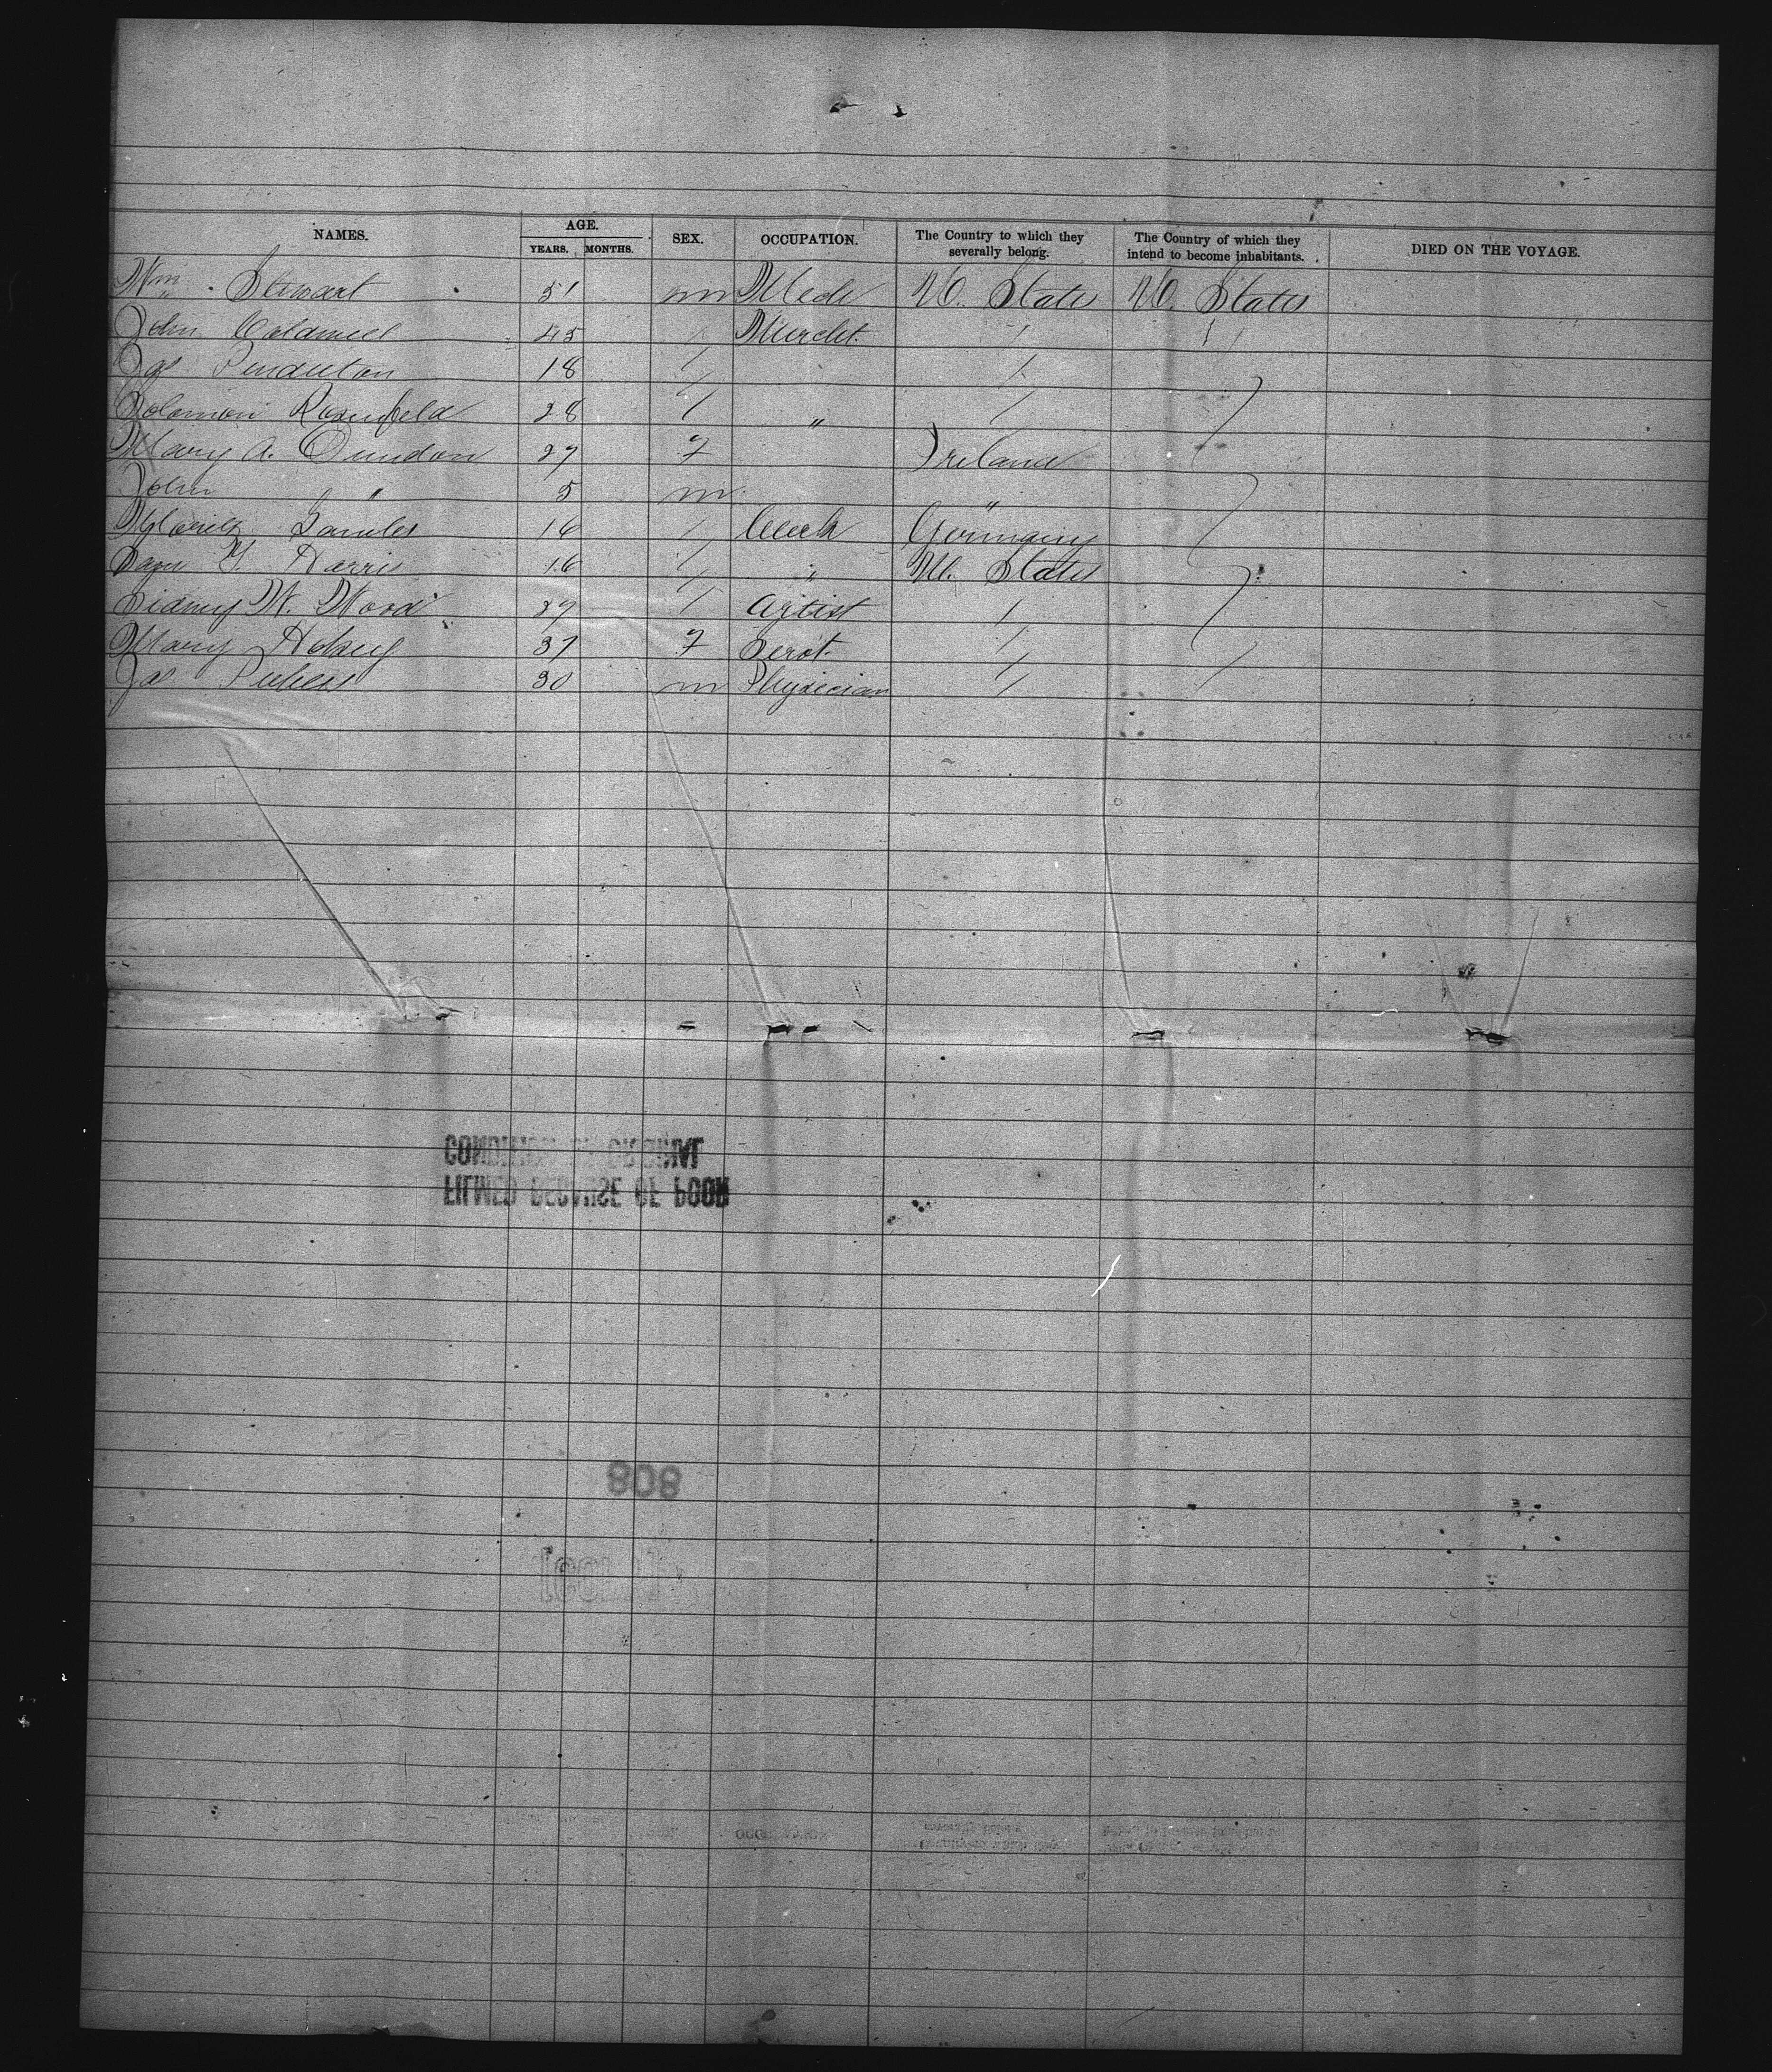 NAMES. AGE. SEX. OCCUPATION. The Country to which they severally belong. The Country of which they intend to become inhabitants. DIED ON THE VOYAGE.
YEARS. MONTHS.
Wm Stewart 51 m Mech U. States U. States
John Caldwell 45 Mercht.
Jas Pendleton 18
Solomon Rosenfeld 28 "
Mary A. Dundon 27 F Ireland
John " 5 m "
Moritz 16 Clerk Germany
Sam Y. Harris 16 " U. States
Sidney W. Wood 27 Artist
Mary 37 F Servt.
Jas 30 m Physician
CONDITION OF ORIGINAL
FILMED BECAUSE OF POOR
808